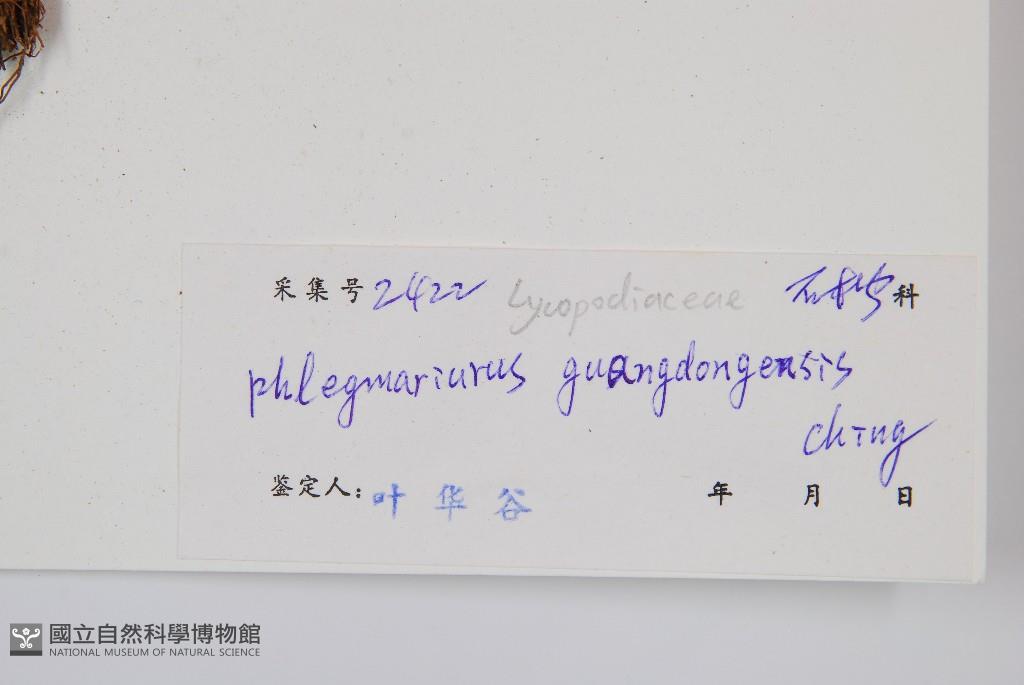 采集号 2422 Lycopodiaceae 石松科
phlegmariurus guangdongensis
ching
鉴定人: 叶华谷 年 月 日
國立自然科學博物館
NATIONAL MUSEUM OF NATURAL SCIENCE